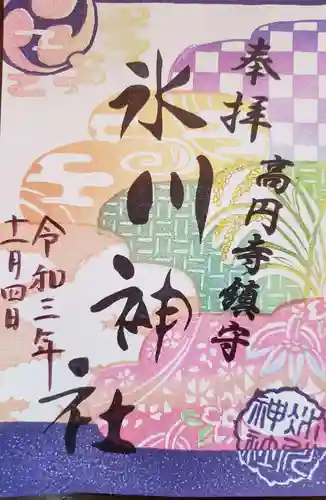 奉拝
高円寺鎮守
氷川神社
令和三年
十一月四日
氷川
神社